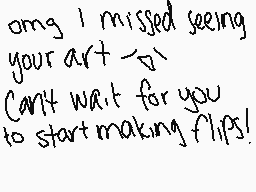 omg I missed seeing
your art ~o~
Can't wait for you
to start making flips!